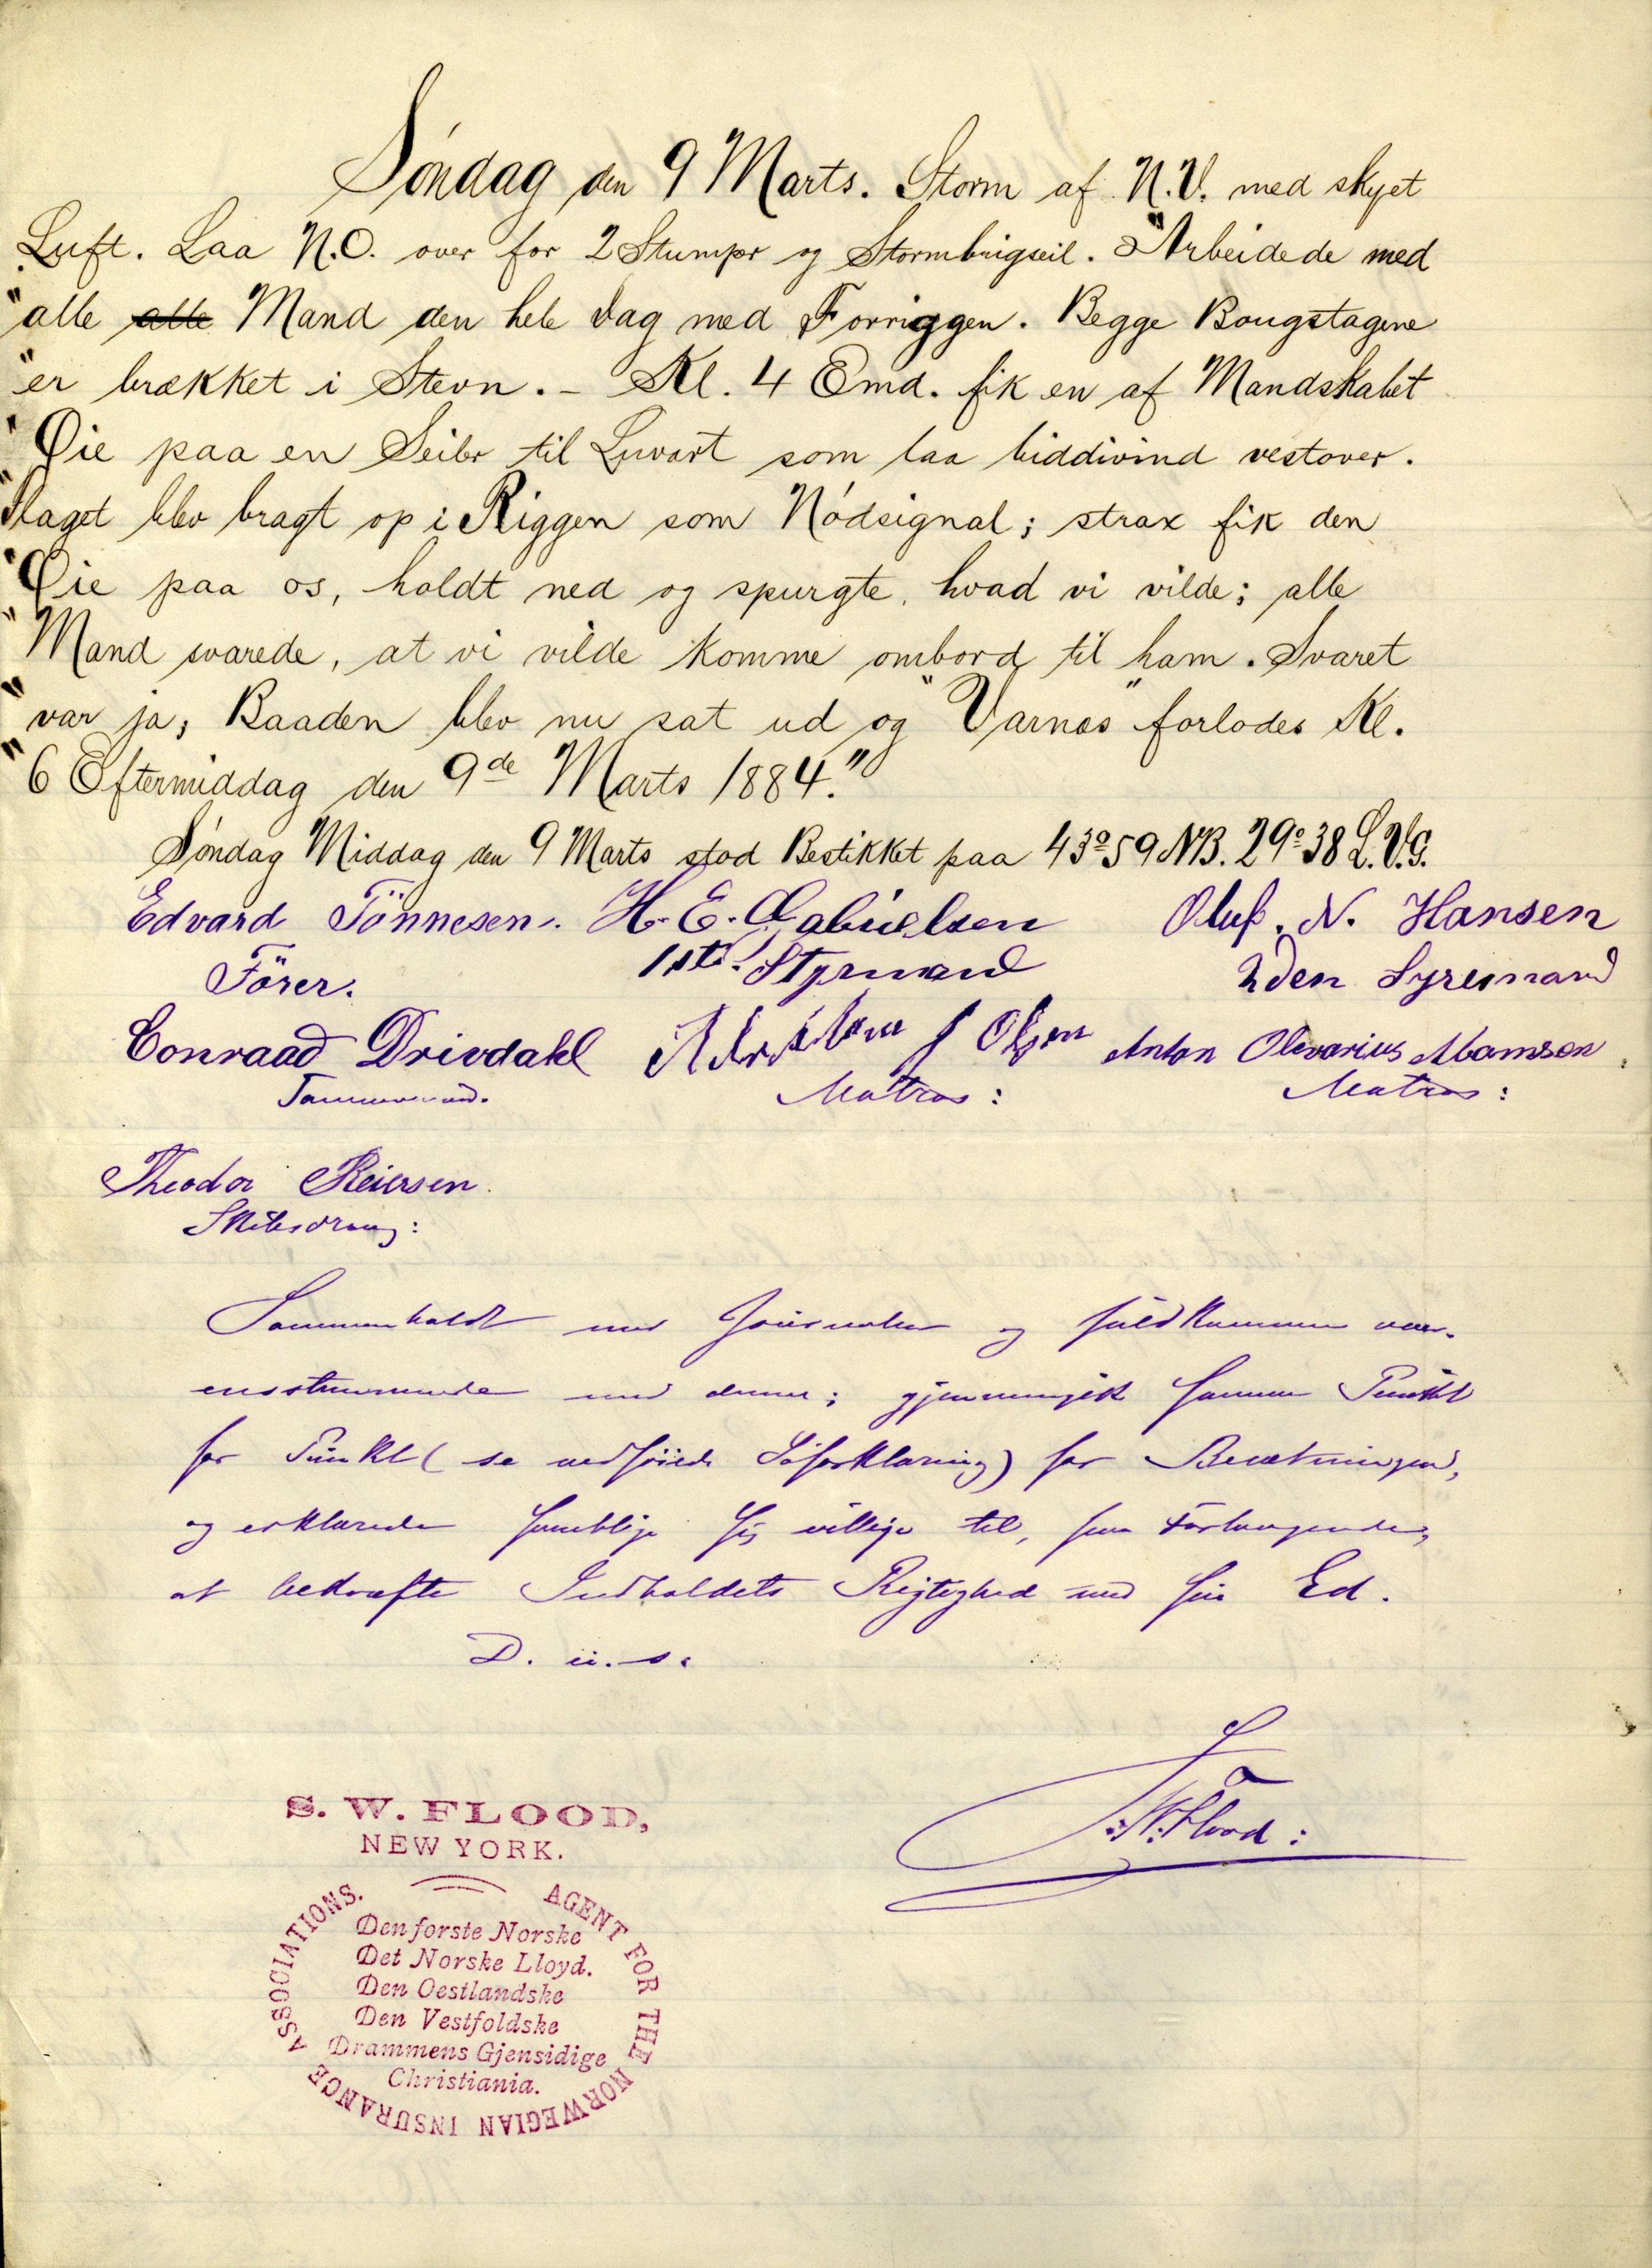 Søndag den 9 Marts. Storm af N.V. med skyet
Luft. Laa N.O. over for 2 Stumper og Stormbrigseil. "Arbeidede med
"alle alle Mand den hele Dag med Forriggen. Begge Bougstagene
"er brækket i Stevn. - Kl. 4 Emd. fik en af Mandskabet
"Øie paa en Seiler til Luvart som laa biddivind vestover.
"Flaget blev bragt op i Riggen som Nødsignal; strax fik den
"Øie paa os, holdt ned og spurgte, hvad vi vilde; alle
"Mand svarede, at vi vilde komme ombord til ham. Svaret
"var ja; Baaden blev nu sat ud og "Varnæs" forlodes Kl.
"6 Eftermiddag den 9de Marts 1884."
Søndag Middag den 9 Marts stod Bestikket paa 43°59 NB. 29°38 L.V.G.
Edvard Tönnesen. H. E. Gabrielsen Oluf. N. Hansen
Förer. 1ste Styrmand 2den Syremand
Conraad Drivdahl J Olsen Anton Olevarius Mamsen
Tømmermand. Matros: Matros:
Theodor Reiersen.
Skibsdreng:
Sammenholdt med Journalen og fuldkommen over-
ensstemmende med denne; gjennemgik samme Punkt
for Punkt (se vedföiede Söforklaring) for Besætningen,
og erklærede samtlige sig villige til, paa Forlangende,
at bekræfte Indholdets Rigtighed med sin Ed.
D. u. s.
S. W. Flood:
S. W. FLOOD,
NEW YORK.
AGENT FOR THE NORWEGIAN INSURANCE ASSOCIATIONS.
Den forste Norske
Det Norske Lloyd.
Den Oestlandske
Den Vestfoldske
Drammens Gjensidige
Christiania.